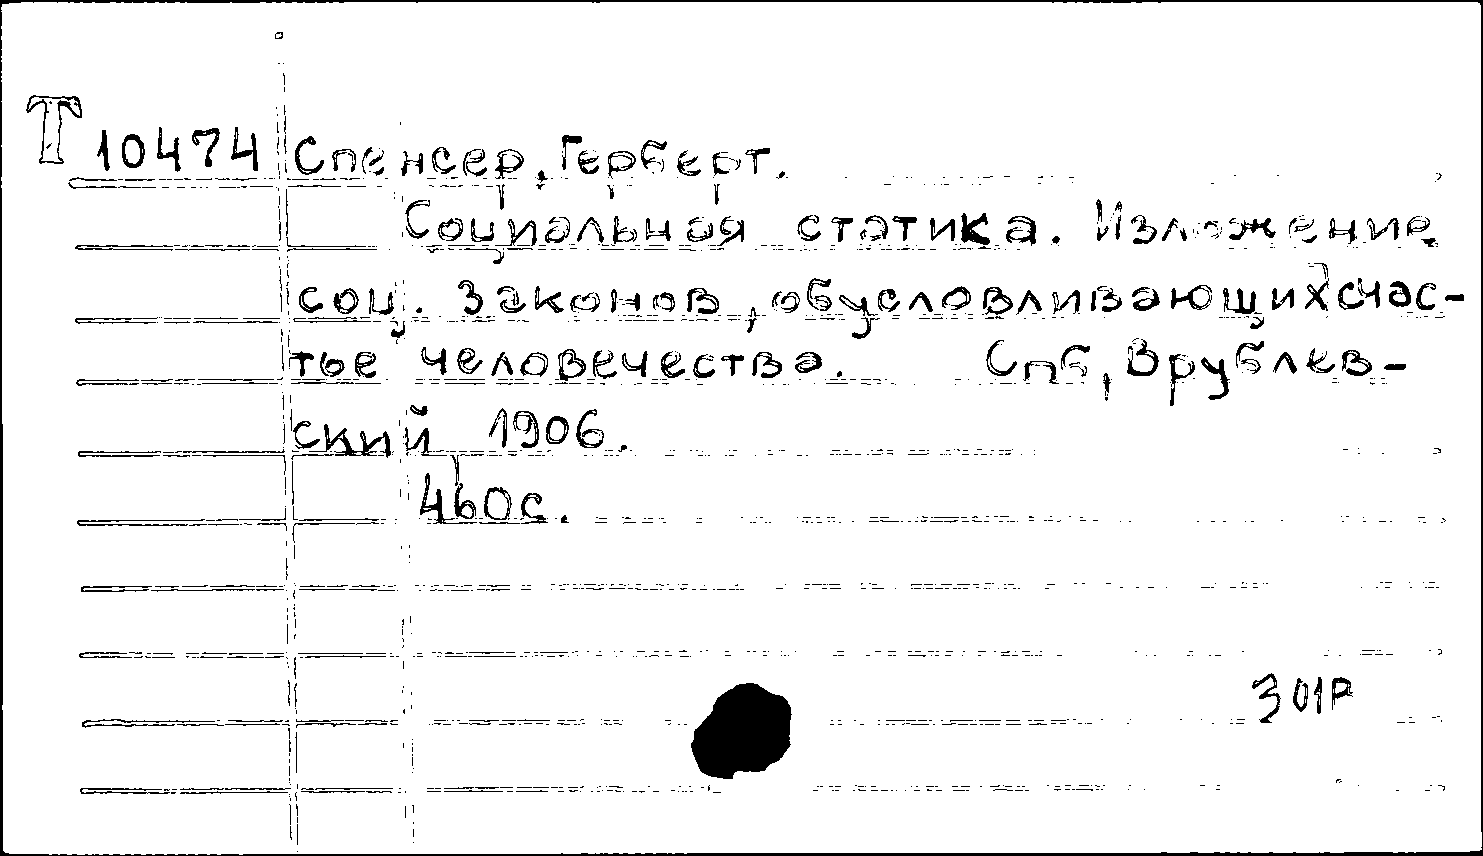 Т 10474 Спенсер, Герберт.
Социальная статика. Изложение
соц. законов, обусловливающих счас-
тье человечества. Спб, Врублев-
ский 1906.
460с.
301Р